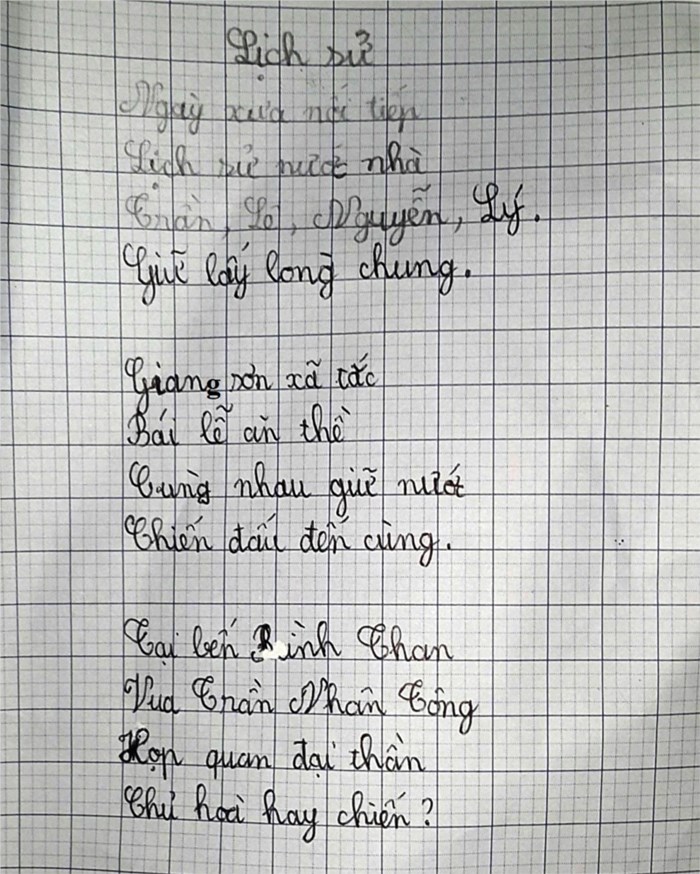 Lịch sử
Ngày xưa nối tiếp
Lịch sử nước nhà
Trần, Lê, Nguyễn, Lý.
Giữ lấy long chung.
Giang sơn xã tắc
Bái lễ ăn thề
Cùng nhau giữ nước
Chiến đấu đến cùng.
Tại bến Bình Than
Vua Trần Nhân Tông
Họp quan đại thần
Chủ hoà hay chiến?